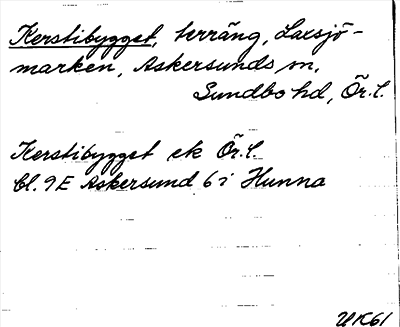 Kerstibygget, terräng, Laxsjö-
marken, Askersunds sn,
Sundbo hd, Ör.l.
Kerstibygget ek Ör.l.
bl. 9E Askersund 6i Hunna
UK61